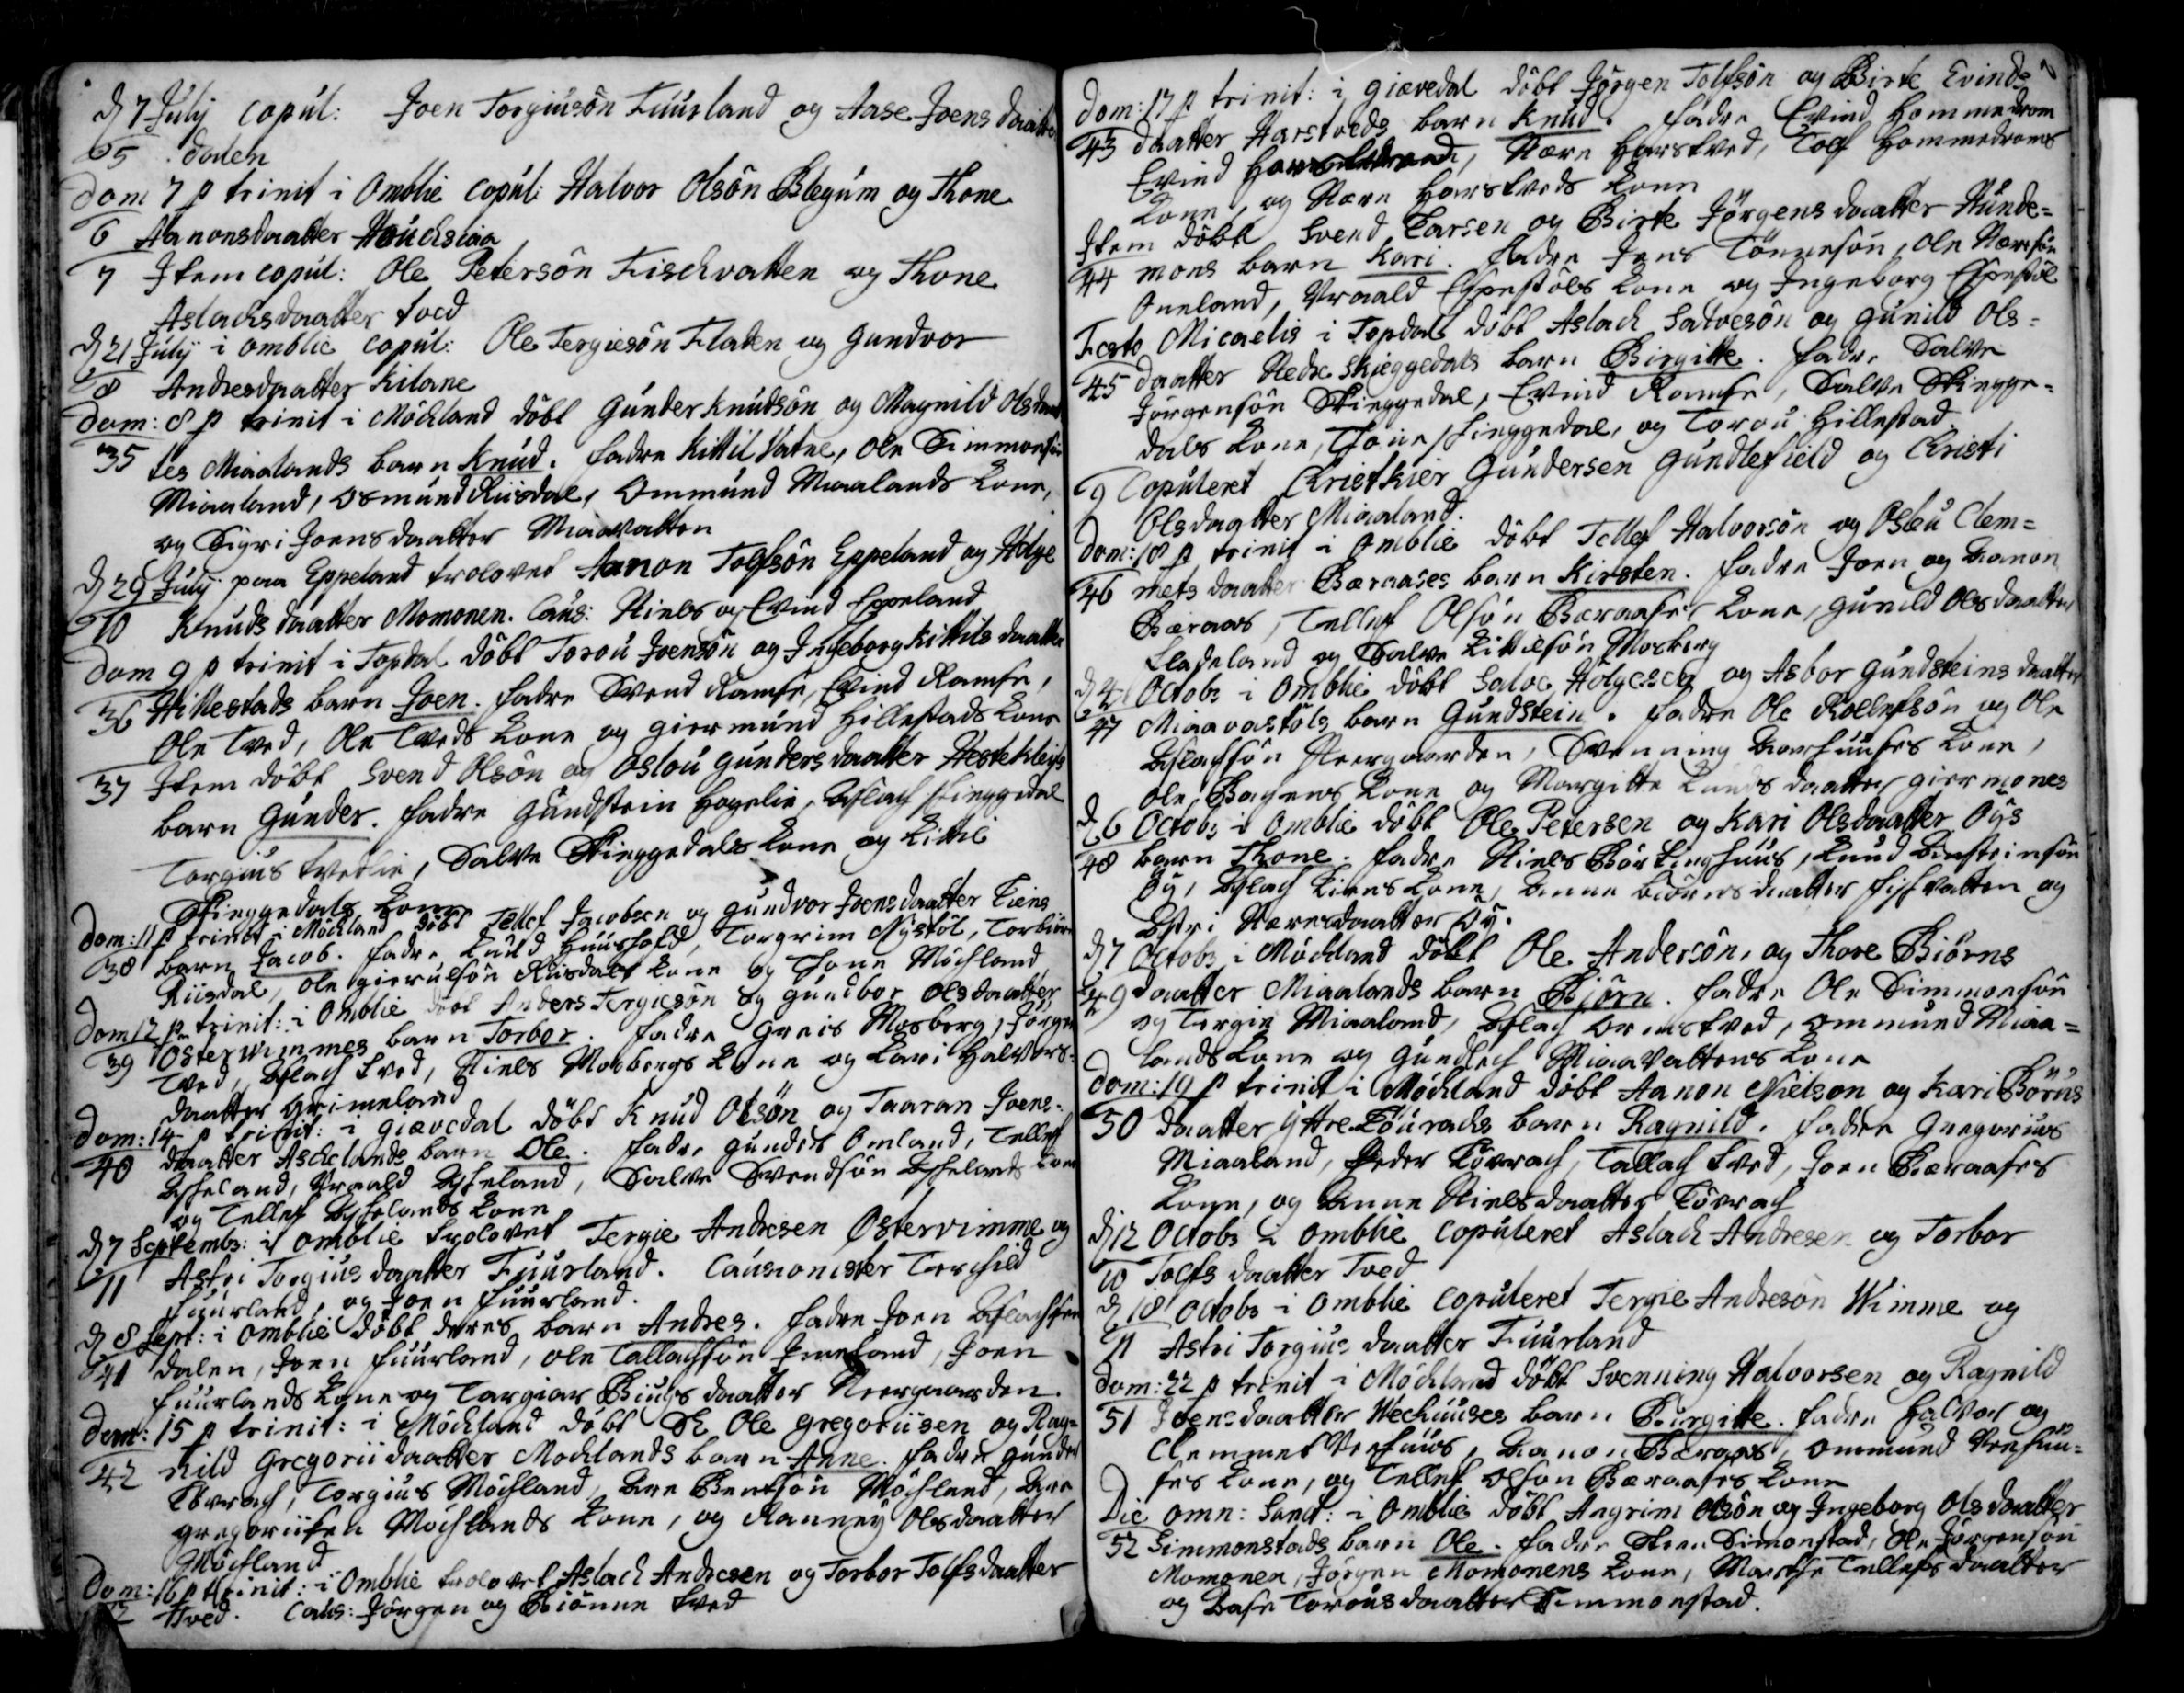 d 7 Julij copul: Joen Torgiusøn Fuurland og Aase Joens daatter
5 dalen
Dom 7 p trinit i Omblie copul: Halvor Olsøn Blegum og Thone
6 Aanonsdaatter
7 Item copul: Ole Petersøn Fischvatten og Thone
Aslachsdaatter Foed
d 21 Julij i Omblie copul: Ole Tergiesøn Fladen og Gundvor
8 Andresdaatter Kilane
Dom: 8 p trinit i Møchland døbt Gunder Knudsøn og Magnild Olsdaat
35 tes Miaalands barn Knud. Fadre Kittil Vatne, Ole Simmonsøn
Miaaland, Osmund Riisdal, Ommund Miaalands Kone,
og Sigri Joensdaatter Miaavatten
d 29 Julij paa Eppeland trolovet Aanon Tolfsøn Eppeland og Helge
10 Knuds daatter Momonen. Caus: Niels og Evind Eppeland
Dom 9 p trinit i Topdal døbt Torou Joensøn og Ingeborg Kittils daatter
36 Hillestads barn Joen. Fadre Svend Ramse, Evind Ramse,
Ole Tved, Ole Tveds Kone og Giermund Hillestads Kone
37 Item døbt Svend Olsøn og Oslou Gunders daatter
barn Gunder. Fadre Gundstein Hogelie, Aslach Skieggedal
Torgius Tvedlie, Salve Skieggedals Kone og Kittil
Skieggedals Kone
Dom: 11 p trinit i Møchland døbt Tellef Jacobsen og Gundvor Joensdaatter Liens
38 barn Jacob. Fadre Knud Huusfold, Torgrim Nystøl, Torbiørn
Riisdal, Ole Gierulsøn Riisdals Kone og Thone Møchland
Dom 12 p trinit: i Omblie døbt Anders Tergiesøn og Gundbor Olsdaatter
39 Østervimmes barn Torbor. Fadre Greis Mosberg, Jørgen
Tved, Aslach Tved, Niels Mosbergs Kone og Kari Halvors-
daatter Grimeland
Dom: 14 p trinit: i Giævedal døbt Knud Olsøn og Taaran Joens-
40 daatter Aschelands barn Ole. Fadre Gunder Omland, Tellef
Askeland, Vraald Askeland, Salve Svendsøn Askelands Kone
og Tellef Askelands Kone
d 7 Septembr: i Omblie trolovet Tergie Andresen Østervimme og
11 Astri Torgius daatter Fuurland. Causionister Terkild
Fuurland, og Joen Fuurland.
d 8 Sept: i Omblie døbt deres barn Andres. Fadre Joen Aslachsen
41 dalen, Joen Fuurland, Ole Tallachsøn Omeland, Joen
Fuurlands Kone og Targier Biugsdaatter Neergaarden.
Dom: 15 p trinit: i Møchland døbt Ole Gregoriisen og Rag-
42 nild Gregorii daatter Mochlands barn Anne. Fadre Gunder
Torgius Møchland, Are Bentsøn Møchland, Are
Gregoriisen Møchlands Kone, og Ranney Olsdaatter
Møchland
Dom: 16 p trinit: i Omblie trolovet Aslach Andresen og Torbor Tolfsdaatter
12 Tved. Caus: Jørgen og Tved
Dom: 17 p trinit: i Giævedal døbt Jørgen Tolfsøn og Birte Evinds-
43 daatter Harstveds barn Knud. Fadre Evind Hommedrom
Evind Nære Harstved, Tolf Hommedroms
Kone, og Nære Harstveds Kone
Item døbt Svend Larsen og Birte Jørgens daatter Hunde-
44 mons barn Kari. Fadre Jens Tønnesøn, Ole Næresøn
Oneland, Vraald Espestøls Kone og Ingeborg Espestøl
Festo Micaelis i Topdal døbt Aslach Salvesøn og Gunild Ols-
45 daatter Nedre Skieggedals barn Birgitte. Fadre Salve
Jørgensøn Skieggedal, Evind Ramse, Salve Skiegge-
dals Kone, Thoine Skieggedal, og Torou Hillestad
9 Copuleret Gundersen Gundlefield og Christi
Olsdaatter Miaaland.
Dom: 18 p trinit i Omblie døbt Tellef Halvorsøn og Osleu Clem-
46 mets daatter Bæraases barn Kirsten. Fadre Joen og Aanon
Bæraas, Tellef Olsøn Bæraases Kone, Gunild Olsdaatter
Fladeland og Salve Kittilsøn Mosberg
d 4 Octobr i Omblie døbt Salve Helgesen og Asbor Gundsteins daatter
47 Miaavastøls barn Gundstein. Fadre Ole Rollefsøn og Ole
Aslachsøn Neergaarden, Svenning Aashuuses Kone,
Ole Kone og Margitte Knuds daatter
d 6 Octobr i Omblie døbt Ole Petersen og Kari Olsdaatter Øÿs
48 barn Thone. Fadre Niels Knud
Øÿ, Aslach Liens Kone, Anne Biørnsdaatter Fischvatten og
Astri Næresdaatter Øÿ.
d 7 Octobr i Møchland døbt Ole Andersøn, og Thore Biørns
49 daatter Miaalands barn Biørn. Fadre Ole Simmonsøn
og Tergie Miaaland, Aslach Ommund Miaa-
lands Kone og Gundlech Miaavattens Kone
Dom: 19 p trinit i Møchland døbt Aanon Nielson og Kari Børns
50 daatter Barn Ragnild. Fadre Gregorius
Miaaland, Peder Tallach Tved, Joen Bæraases
Kone, og Anne Nielsdaatter
d 12 Octobr i Omblie copuleret Aslach Andresen og Torbor
10 Tolfs daatter Tved
d 18 Octobr i Omblie copuleret Tergie Andresøn Wimme og
11 Astri Torgius daatter Fuurland
Dom: 22 p trinit i Møchland døbt Svenning Halvorsen og Ragnild
51 Joensdaatter Wechuuses barn Birgitte. Fadre Halvor og
Clemmet Vechuus, Aanon Bæraas, Ommund Vechuu-
ses Kone, og Tellef Olsøn Bæraases Kone
Die omn: Sanct: i Omblie døbt Angrim Olsøn og Ingeborg Olsdaatter
52 Simmonstads barn Ole. Fadre Simonstad, Ole Jørgensøn
Momonen, Jørgen Momonens Kone, Marthe Tellefs daatter
og Aase Torousdaatter Simmonstad.